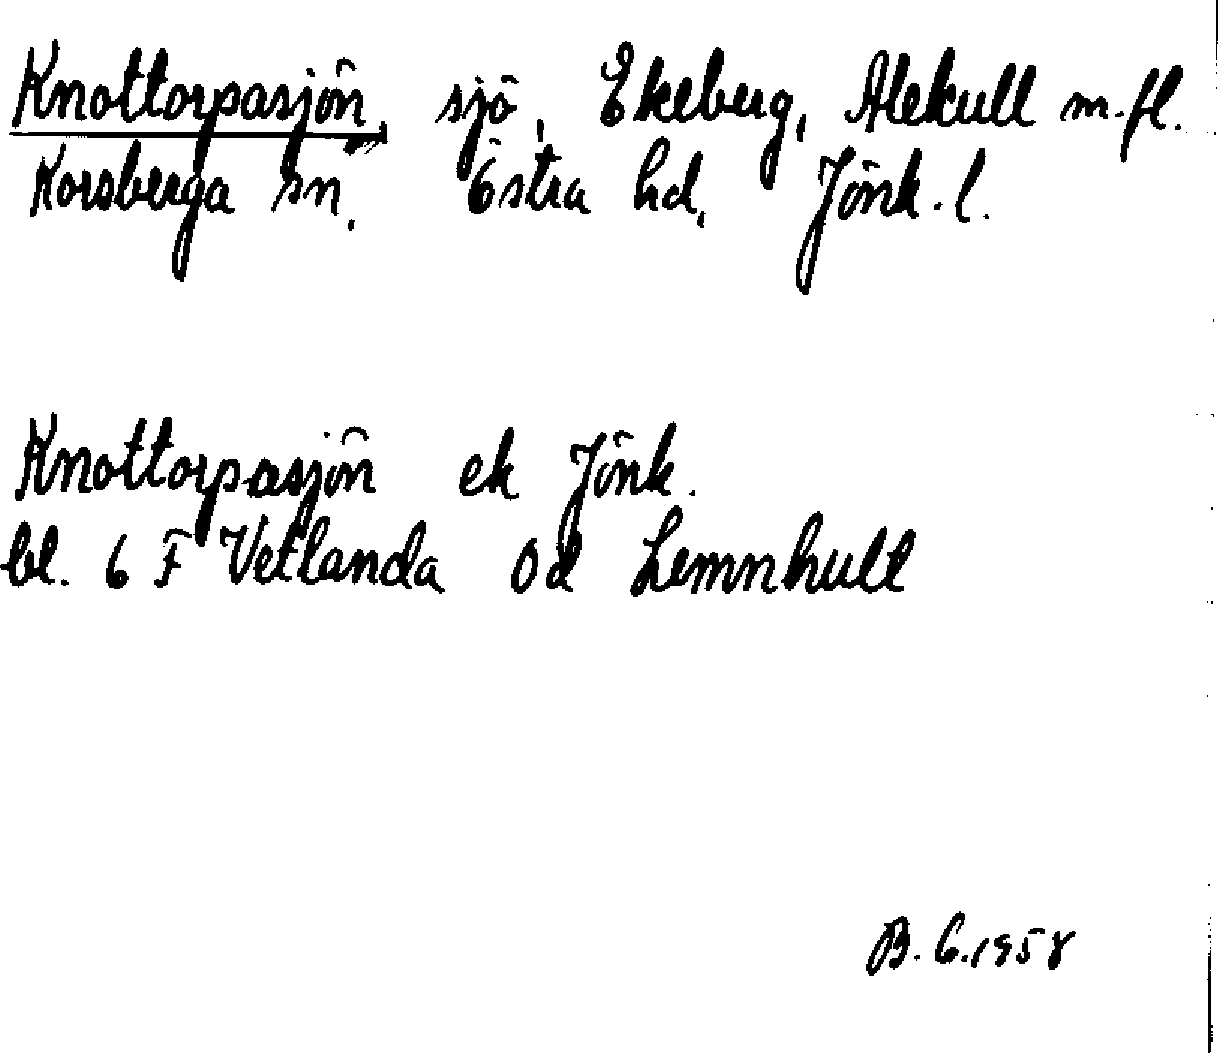 Knottorpasjön, sjö, Ekeberg, Alekull m.fl.
Korsberga sn. Östra hd, Jönk.l.
Knottorpasjön ek Jönk.
bl. 6 F Vetlanda Od Lemnhult
B. G. 1958